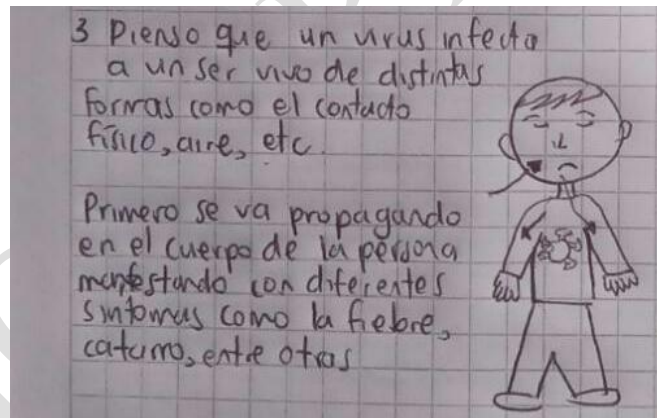 3 Pienso que un virus infecta
a un ser vivo de distintas
formas como el contacto
físico, aire, etc.
Primero se va propagando
en el cuerpo de la persona
manifestando con diferentes
sintomas como la fiebre,
catarro, entre otros